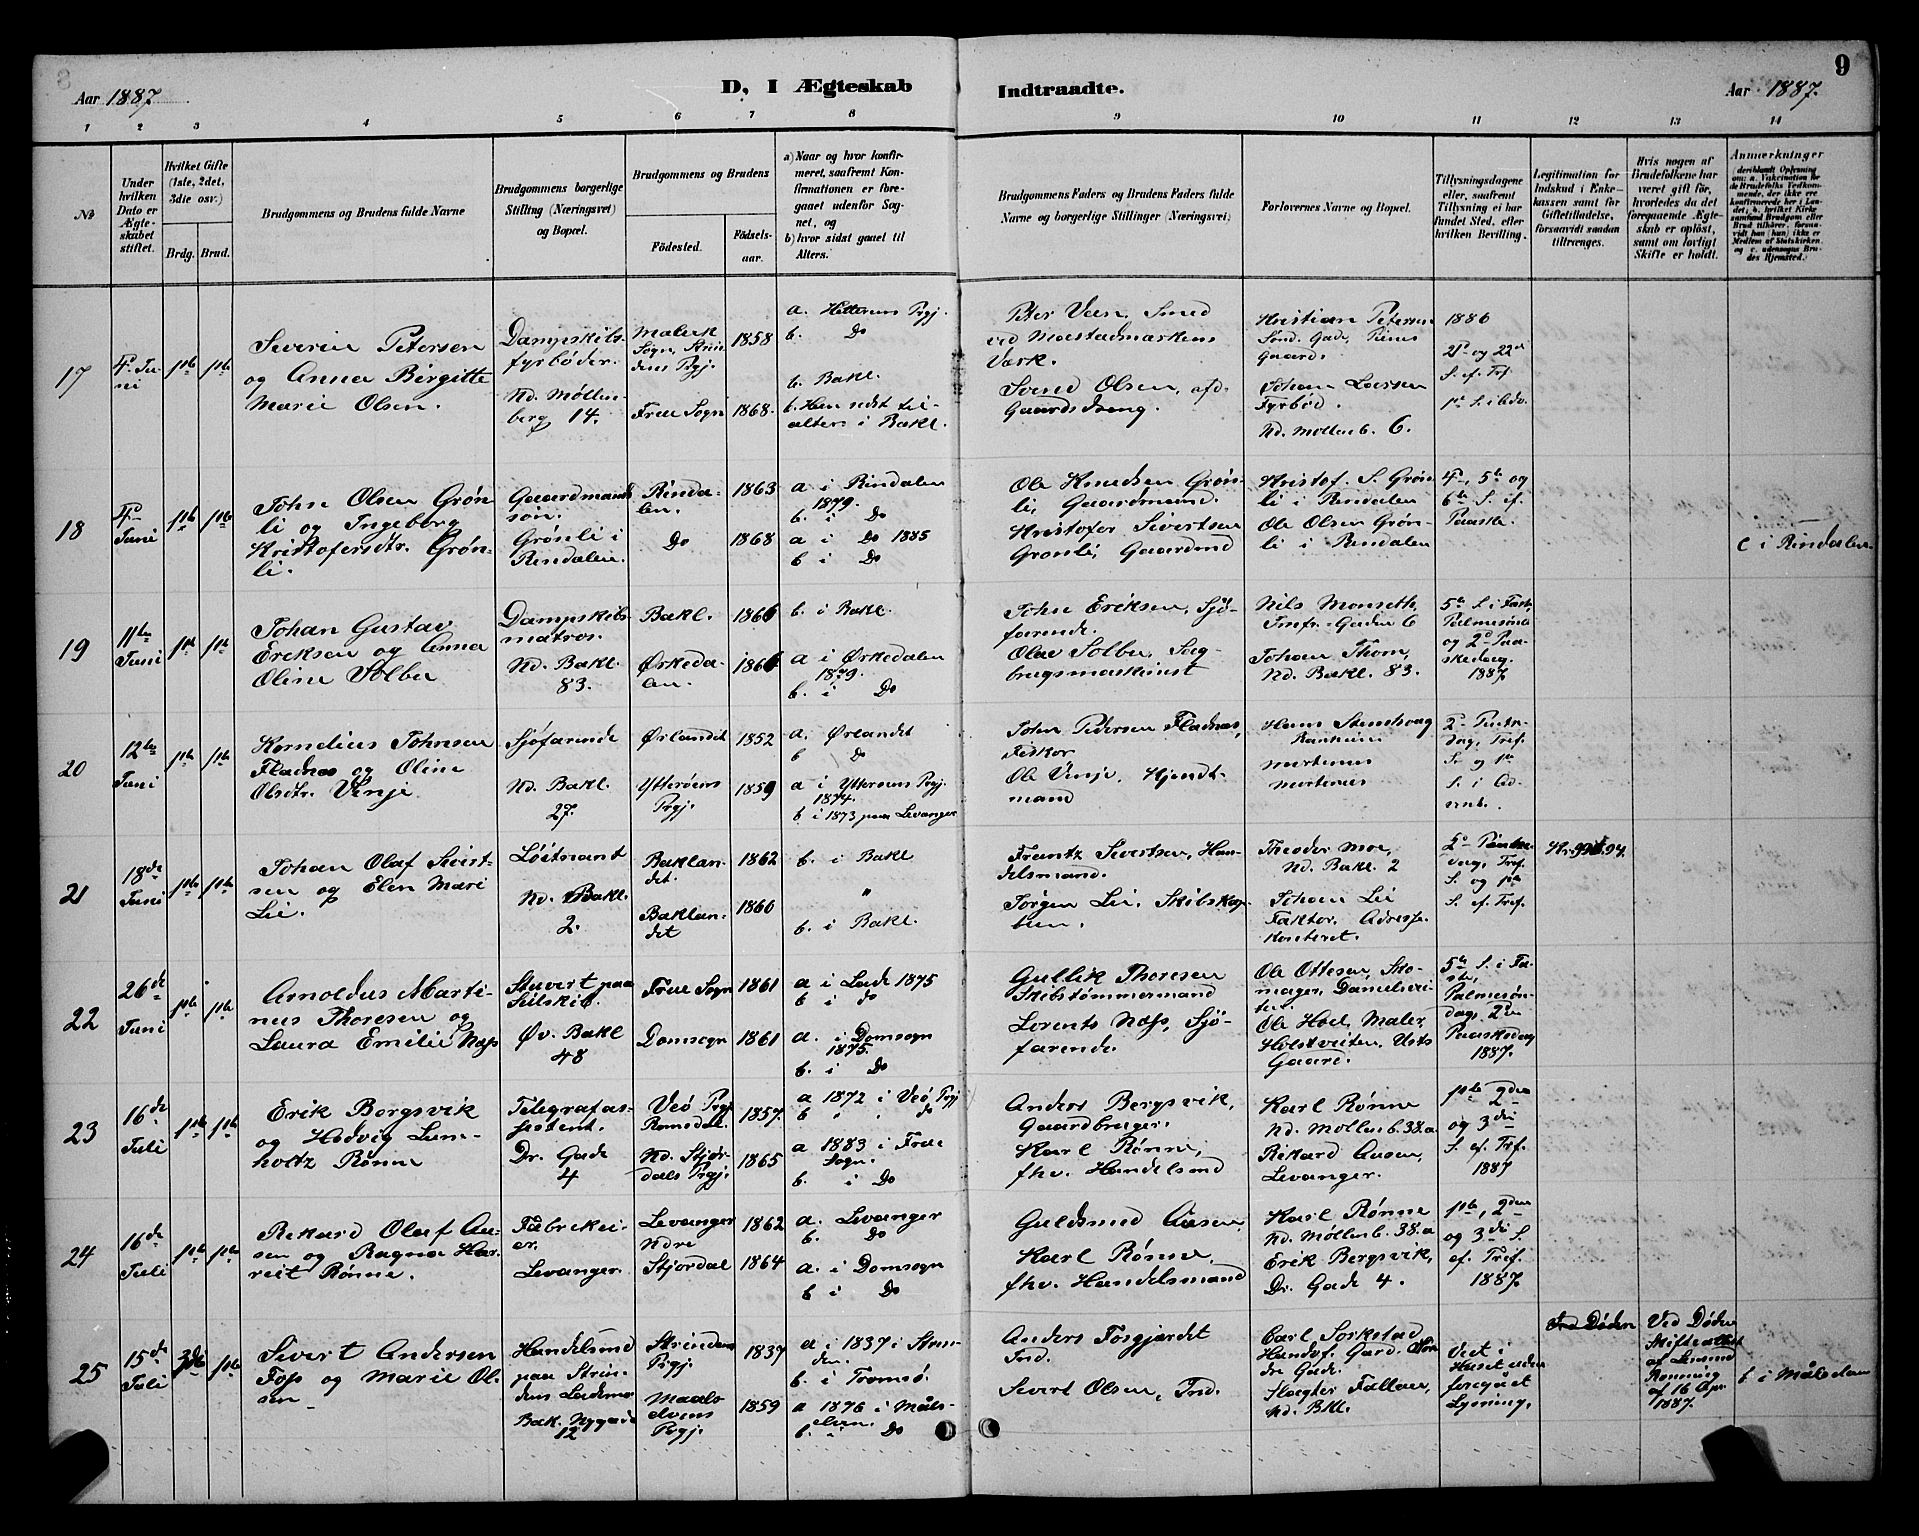 Aar 1887. D, I Ægteskab Indtraadte. Aar 1887. 9
1 2 3 4 5 6 7 8 9 10 11 12 13 14
№
Under hvilken Dato er Ægteskabet stiftet.
Hvilket Gifte (1ste, 2det, 3die osv.)
Brdg. Brud.
Brudgommens og Brudens fulde Navne
Brudgommens borgerlige Stilling (Næringsvei) og Bopæl.
Brudgommens og Brudens
Fødested.
Fødselsaar.
a) Naar og hvor konfirmeret, saafremt Konfirmationen er foregaaet udenfor Sognet, og
b) hvor sidst gaaet til Alters.
Brudgommens Faders og Brudens Faders fulde Navne og borgerlige Stillinger (Næringsvei)
Forlovernes Navne og Bopæl.
Tillysningsdagene eller, saafremt Tillysning ei har fundet Sted, efter hvilken Bevilling.
Legitimation for Indskud i Enkekassen samt for Giftetilladelse, forsaavidt saadan tiltrænges.
Hvis nogen af Brudefolkene har været gift før, hvorledes da det foregaaende Ægteskab er opløst, samt om lovligt Skifte er holdt.
Anmærkninger
17
4. Juni
1ste 1ste
Severin Petersen
og Anna Birgitte
Marie Olsen.
Dampskibs-
fyrbøder.
Nd. Møllen-
berg 14.
Malvik
Sogn, Strin-
dens Prgj.
Frue Sogn
1858
1868.
a. Hitterens Prgj.
b. Do
b. Bakl.
b. Hun sidst til-
alters i Bakl.
Peter Veen, Smed
ved Mostadmarkens
Værk.
Svend Olsen, afd.
Gaardsdreng.
Kristian Petersen
Johan Larsen
Fyrbød.
Nd. Mollenb. 6.
1886
21de og 22de
S. ef. Tref.
1ste S. i Adv.
18
4de
Juni
1ste 1ste
John Olsen Grøn-
li og Ingeborg
Kristofersdtr. Grøn-
li.
Gaardmands
søn.
Grønli i
Rindalen.
Rinda-
len.
Do
1863
1868
a i Rindalen
1879.
b. i Do
a i Do 1885
b i Do
Ole Knudsen Grøn-
li, Gaardmand.
Kristofer Sivertsen
Gronli, Gaardmd
Kristof. S. Grøn-
li i Rindalen
Ole Olsen Grøn-
li i Rindalen
4de, 5te og
6te S. ef.
Paaske.
c i Rindalen
19
11te
Juni
1ste 1ste
Johan Gustav
Eriksen og Anna
Oline Solbu
Dampskibs-
matros.
Nd. Bakl.
83.
Bakl.
Ørkeda-
len.
1866
b. i Bakl.
a i Ørkedalen
1879.
b. i Do
John Eriksen, Sjø-
farende.
Olav Solbu, Sag-
brugsmaskinist
Nils Monseth,
Jomfr. Gaden 6
Johan Thom,
Nd. Bakl. 83.
5te S. i Fast,
Palmesønd.
og 2den Paa-
skedag.
1887.
20
12te
Juni
1ste 1ste
Kornelius Johnsen
Fladnas og Oline
Olsdtr. Vinje.
Sjøfarende
Nd. Bakl.
27.
Ørlandet
Ytterøens
Prgj.
1852
1859
a. Ørlandet
b Do
a i Ytterøens Prgj.
1874.
b i 1873 paa Levanger
John Pedersen Fladnas,
Fisker
Ole Vinje, Hjendt-
mand
Hans Stentsvag
Ranheim
2den Pintse-
dag, Tref.
S. og 1ste
S. i
21
18de
Juni
1ste 1ste
Johan Olaf Sivert-
sen og Elen Mari
Lie.
Løitnant
Nd. Bakl.
2.
Baklan-
det.
Baklan-
det
1862
1860
b. i Bakl
"
b. i Bakl.
Frantz Sivertsen, Han-
delsmand.
Jørgen Lie, Skibskap-
tein.
Theodor Moe,
Nd. Bakl. 2
Johan Lie
Faktor. Adresse-
kontoret.
2den Pintse-
dag, Tref.
S. og 1ste
S. ef. Tref.
22
26de
Juni
1ste 1ste
Arnoldus Marti-
nus Thoresen og
Laura Emilie Næss
Stuert paa
Seilskib.
Øv. Bakl
48
Frue Sogn
Domsogn
1861
1861
a i Lade 1875
b i do
a. i Domsogn
1875.
b. i Do
Gullik Thoresen
Skibstømmermand
Lorents Næss, Sjø-
farende.
Ole Ottesen, Sko-
mager, Danielsvei-
ten.
Ole Hoel, Maler,
Holstveiten, Usts
Gaard.
5te S. i Fa-
ste,
Palmesøn-
dag, 2den
Paaskedag
1887.
23
16de
Juli
1ste 1ste
Erik Borgsvik
og Hedvig Lum-
holtz Rønne
Telegrafas-
sistent.
Dr. Gade
4
Veø Prgj
Romsdal.
Nd. Stjør-
dals Prgj.
1857.
1865
a 1872 i Veø Prgj
b " do
a 1883 i Frue
Sogn.
b. i Do
Anders Bergsvik,
Gaardbruger.
Karl Rønne,
fhv. Handelsmd
Karl Rønne
Nd. Mollenb. 38.a
Rikard Aasen,
Levanger.
1ste 2den
og 3die
S. ef. Tref.
1887
24
16de
Juli
1ste 1ste
Rikard Olaf Aa-
sen og Ragna Har-
riet Rønne.
Fabrikei-
er.
Levanger.
Levanger
Ndre
Stjordal
1862
1864
a. Levanger
b. Do
a. i Domsogn
b i Do
Guldsmed Aasen
Karl Rønne,
fhv. Handelsmand
Karl Rønne
Nd. Møllenb. 38.a
Erik Bergsvik,
Dr. Gade 4.
1ste, 2den
og 3die S.
ef. Tref.
1887.
25
15de
Juli
3die 1ste
Sivert Andersen
Foss og Marie Ol-
sen
Handelsmd
paa Strin-
dens Lademo
Bak. Nygade
12
Strindens
Prgj.
Maals-
elvens
Prgj.
1837
1859
a i 1837 i Strin-
den.
b. i Tromsø.
a 1876 i Måls-
elven.
b. i Do
Anders Fosgjærdet
Ind.
Sivert Olsen, Ind.
Carl Sorkstad
Slagter Fallan,
Nd. Bkl.
Viet i
Huset uden
foregået
Lysning.
Ved Døden
Skifteattest
af Lensmd
Rønning
af 16 Apr.
1887.